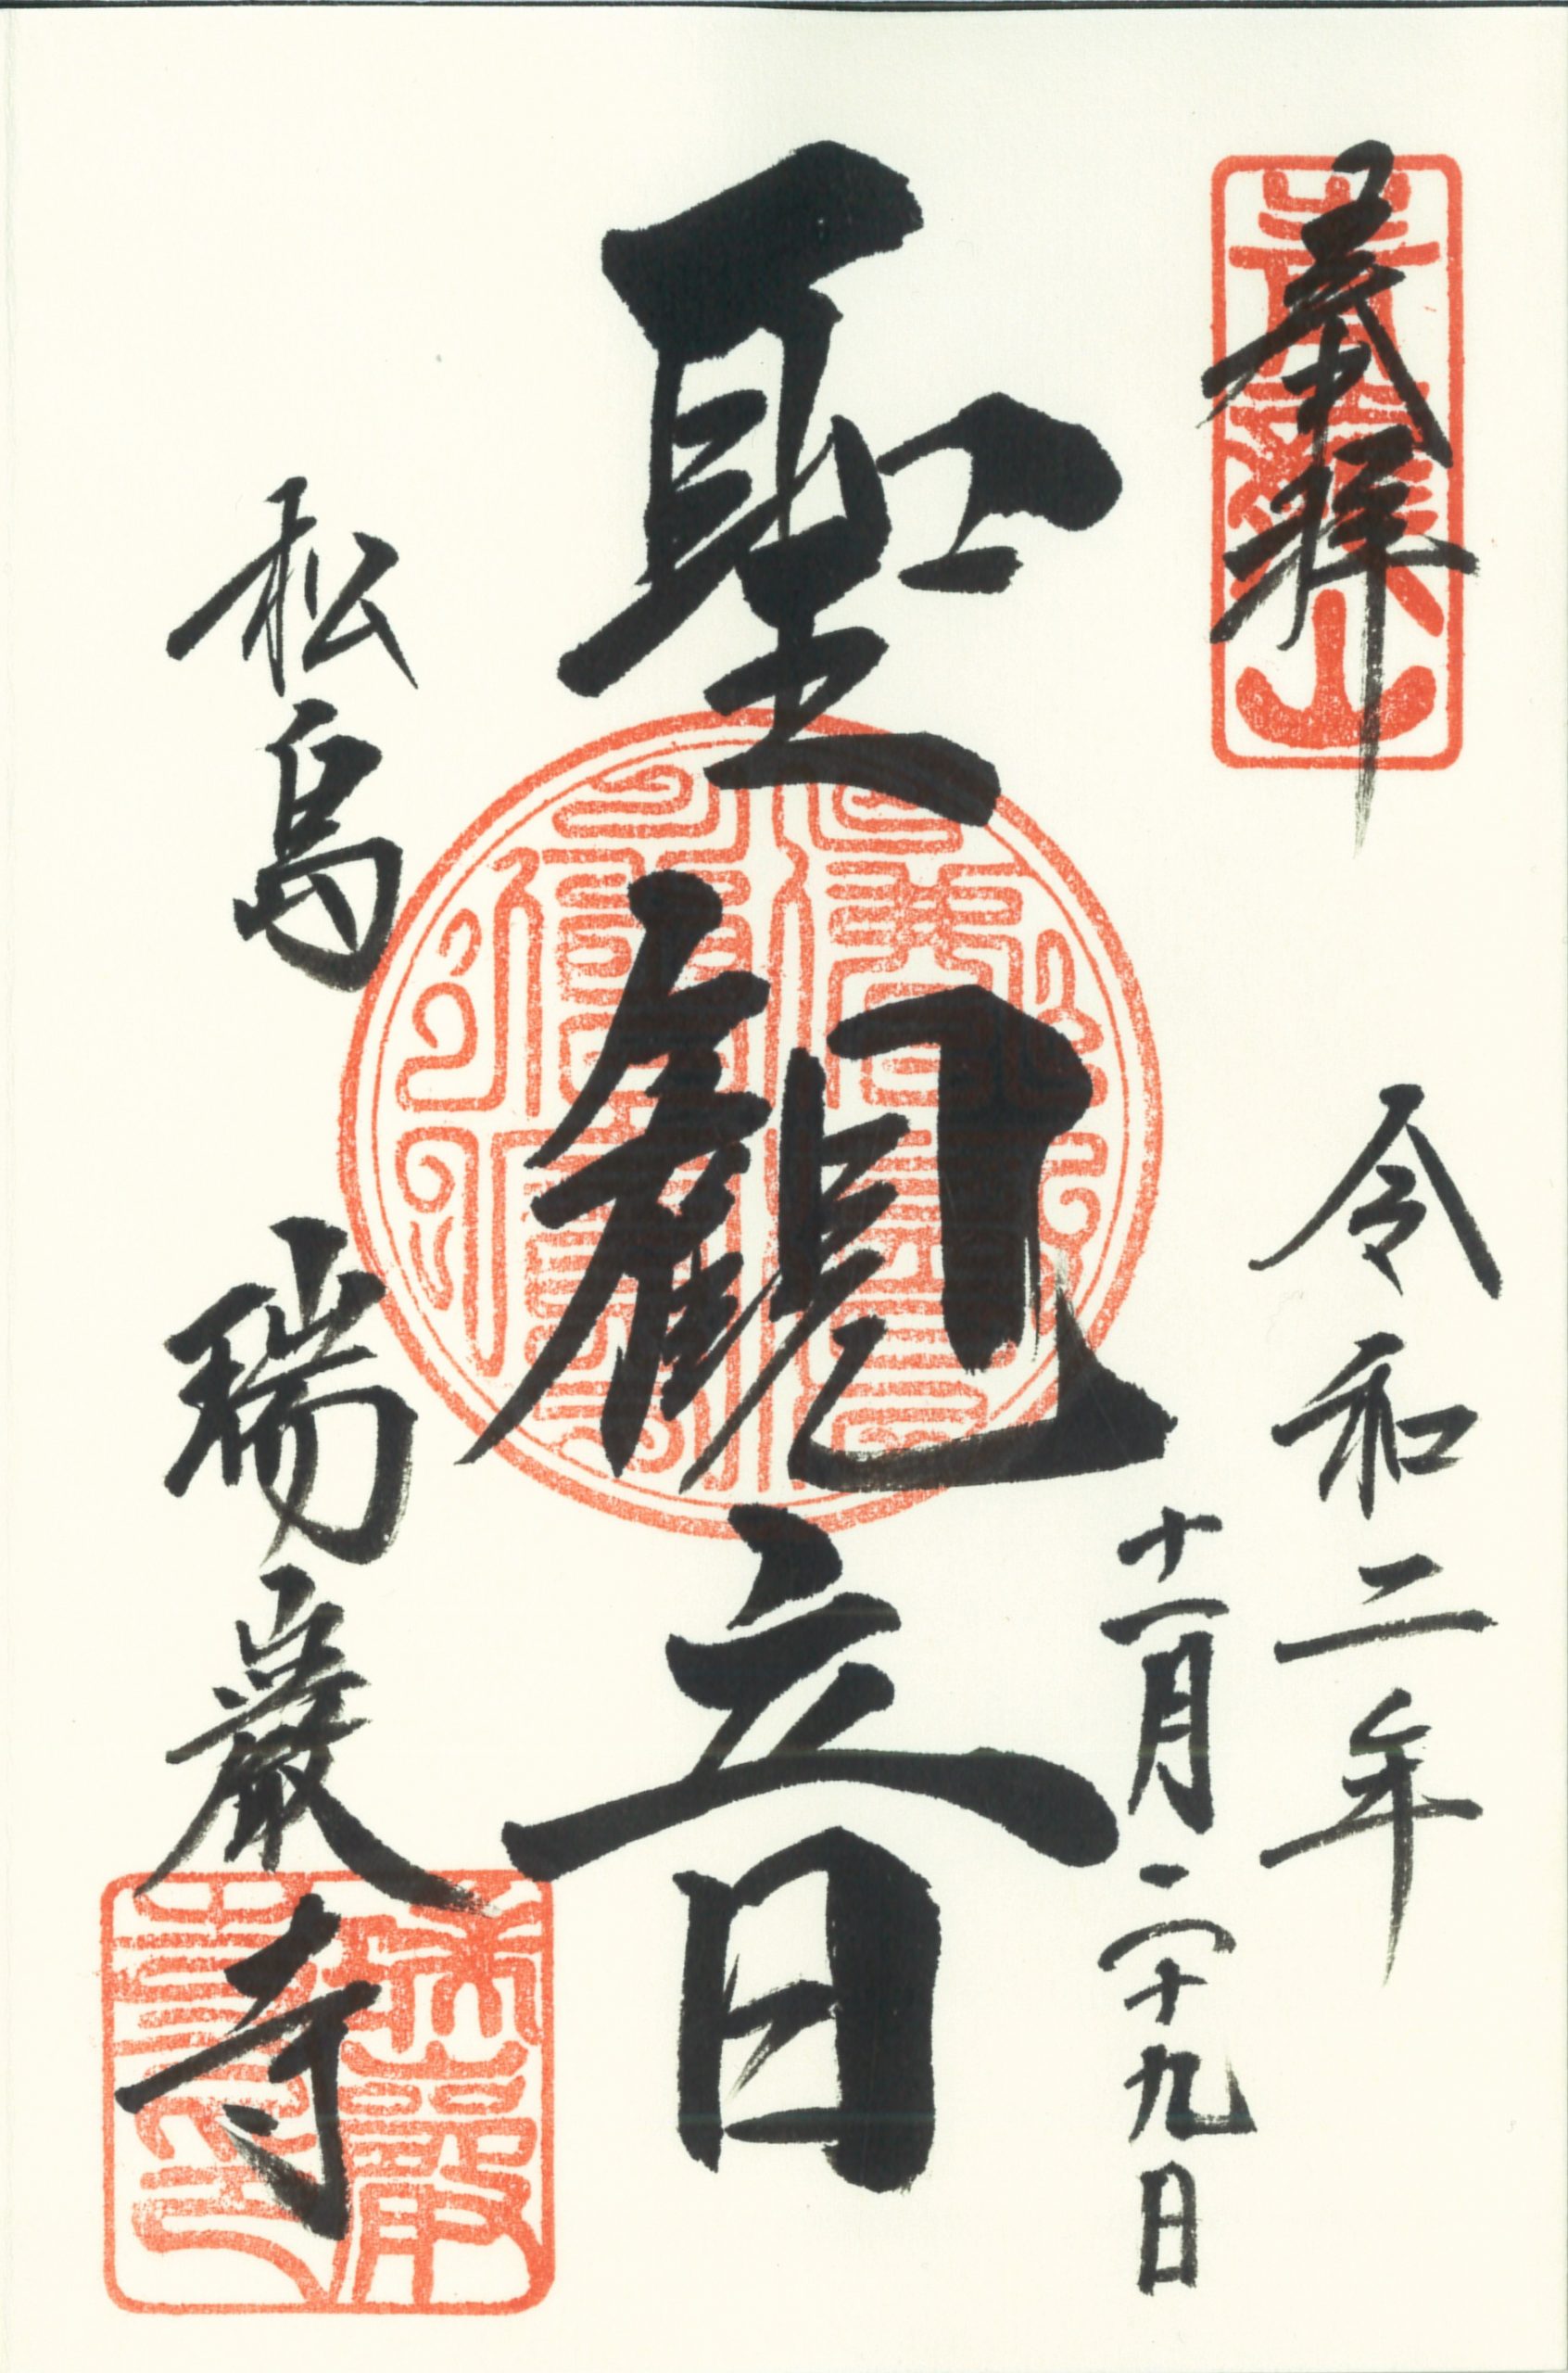 奉拝
令和二年
十一月二十九日
聖観音
松島 瑞巌寺